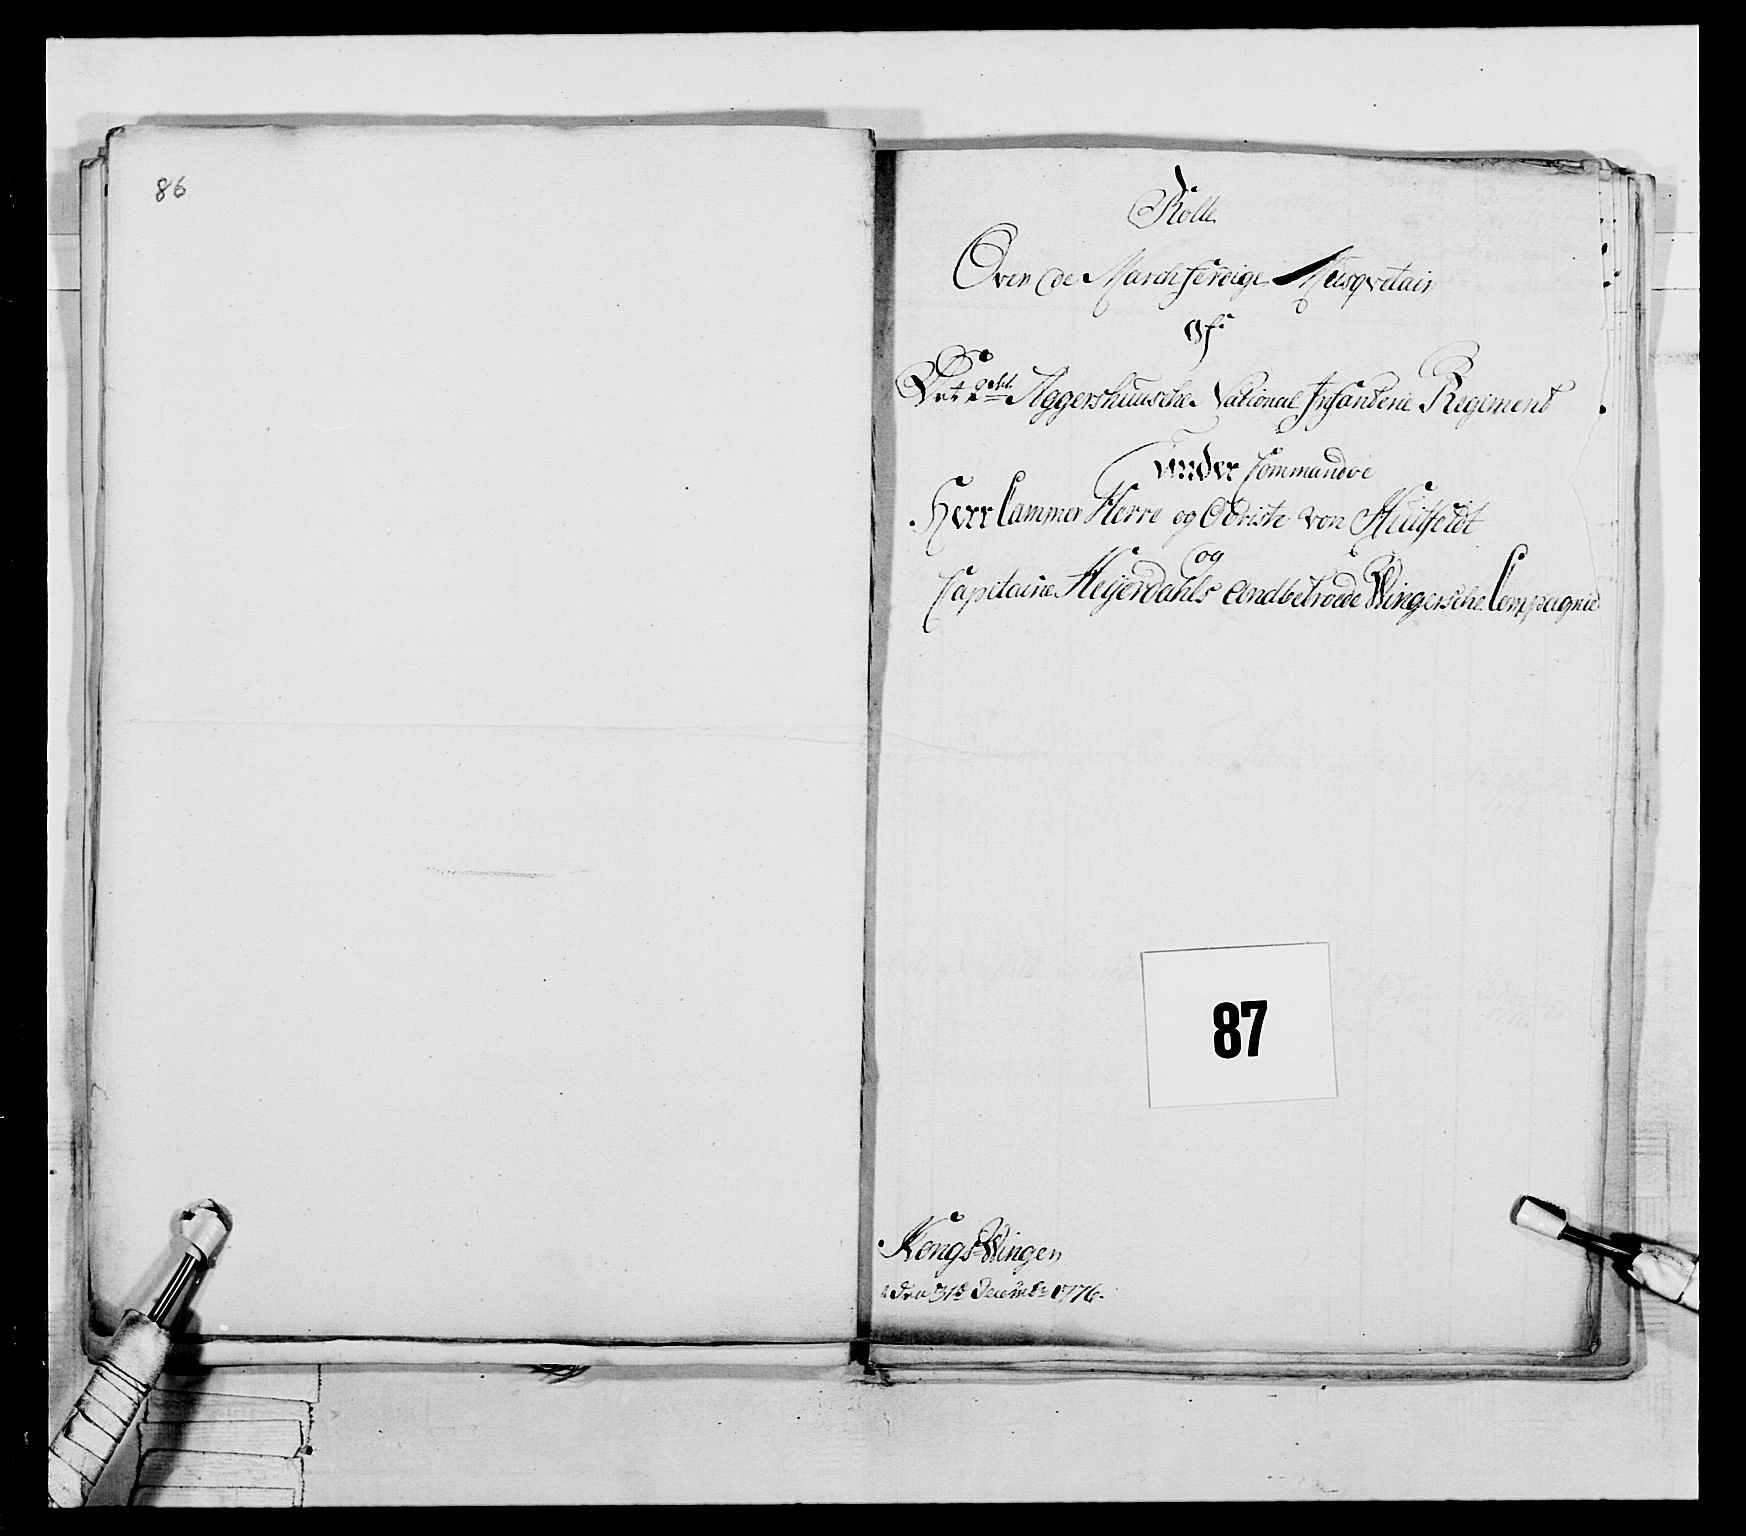 86
Rolle
Over de March færdige Musqvetair
af
Det 2det Aggershuusche National Infanterie Regiment
under Commandoe
Herr Cammer Herre og Obriste von Huitfeldt
og
Capitaine Heyerdahls Andbetroede Wingersche Compagnie
87
Kongs Winger
den 31te Decembr 1776.